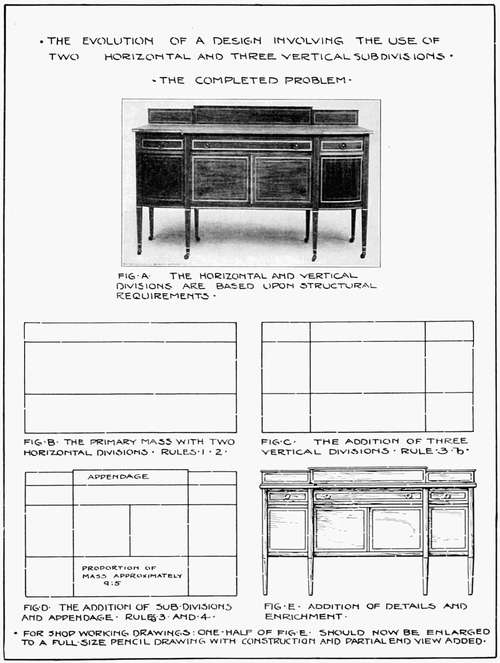 • THE EVOLUTION OF A DESIGN INVOLVING THE USE OF
TWO HORIZONTAL AND THREE VERTICAL SUBDIVISIONS •
• THE COMPLETED PROBLEM •
FIG • A • THE HORIZONTAL AND VERTICAL
DIVISIONS ARE BASED UPON STRUCTURAL
REQUIREMENTS •
FIG • B • THE PRIMARY MASS WITH TWO
HORIZONTAL DIVISIONS • RULES • 1 • 2 •
FIG • C • THE ADDITION OF THREE
VERTICAL DIVISIONS • RULE • 3 • b •
APPENDAGE
PROPORTION OF
MASS APPROXIMATELY
9:5
FIG • D • THE ADDITION OF SUB-DIVISIONS
AND APPENDAGE • RULES 3 AND • 4 •
FIG • E • ADDITION OF DETAILS AND
ENRICHMENT •
• FOR SHOP WORKING DRAWINGS: ONE-HALF OF FIG • E • SHOULD NOW BE ENLARGED
TO A FULL-SIZE PENCIL DRAWING WITH CONSTRUCTION AND PARTIAL END VIEW ADDED •